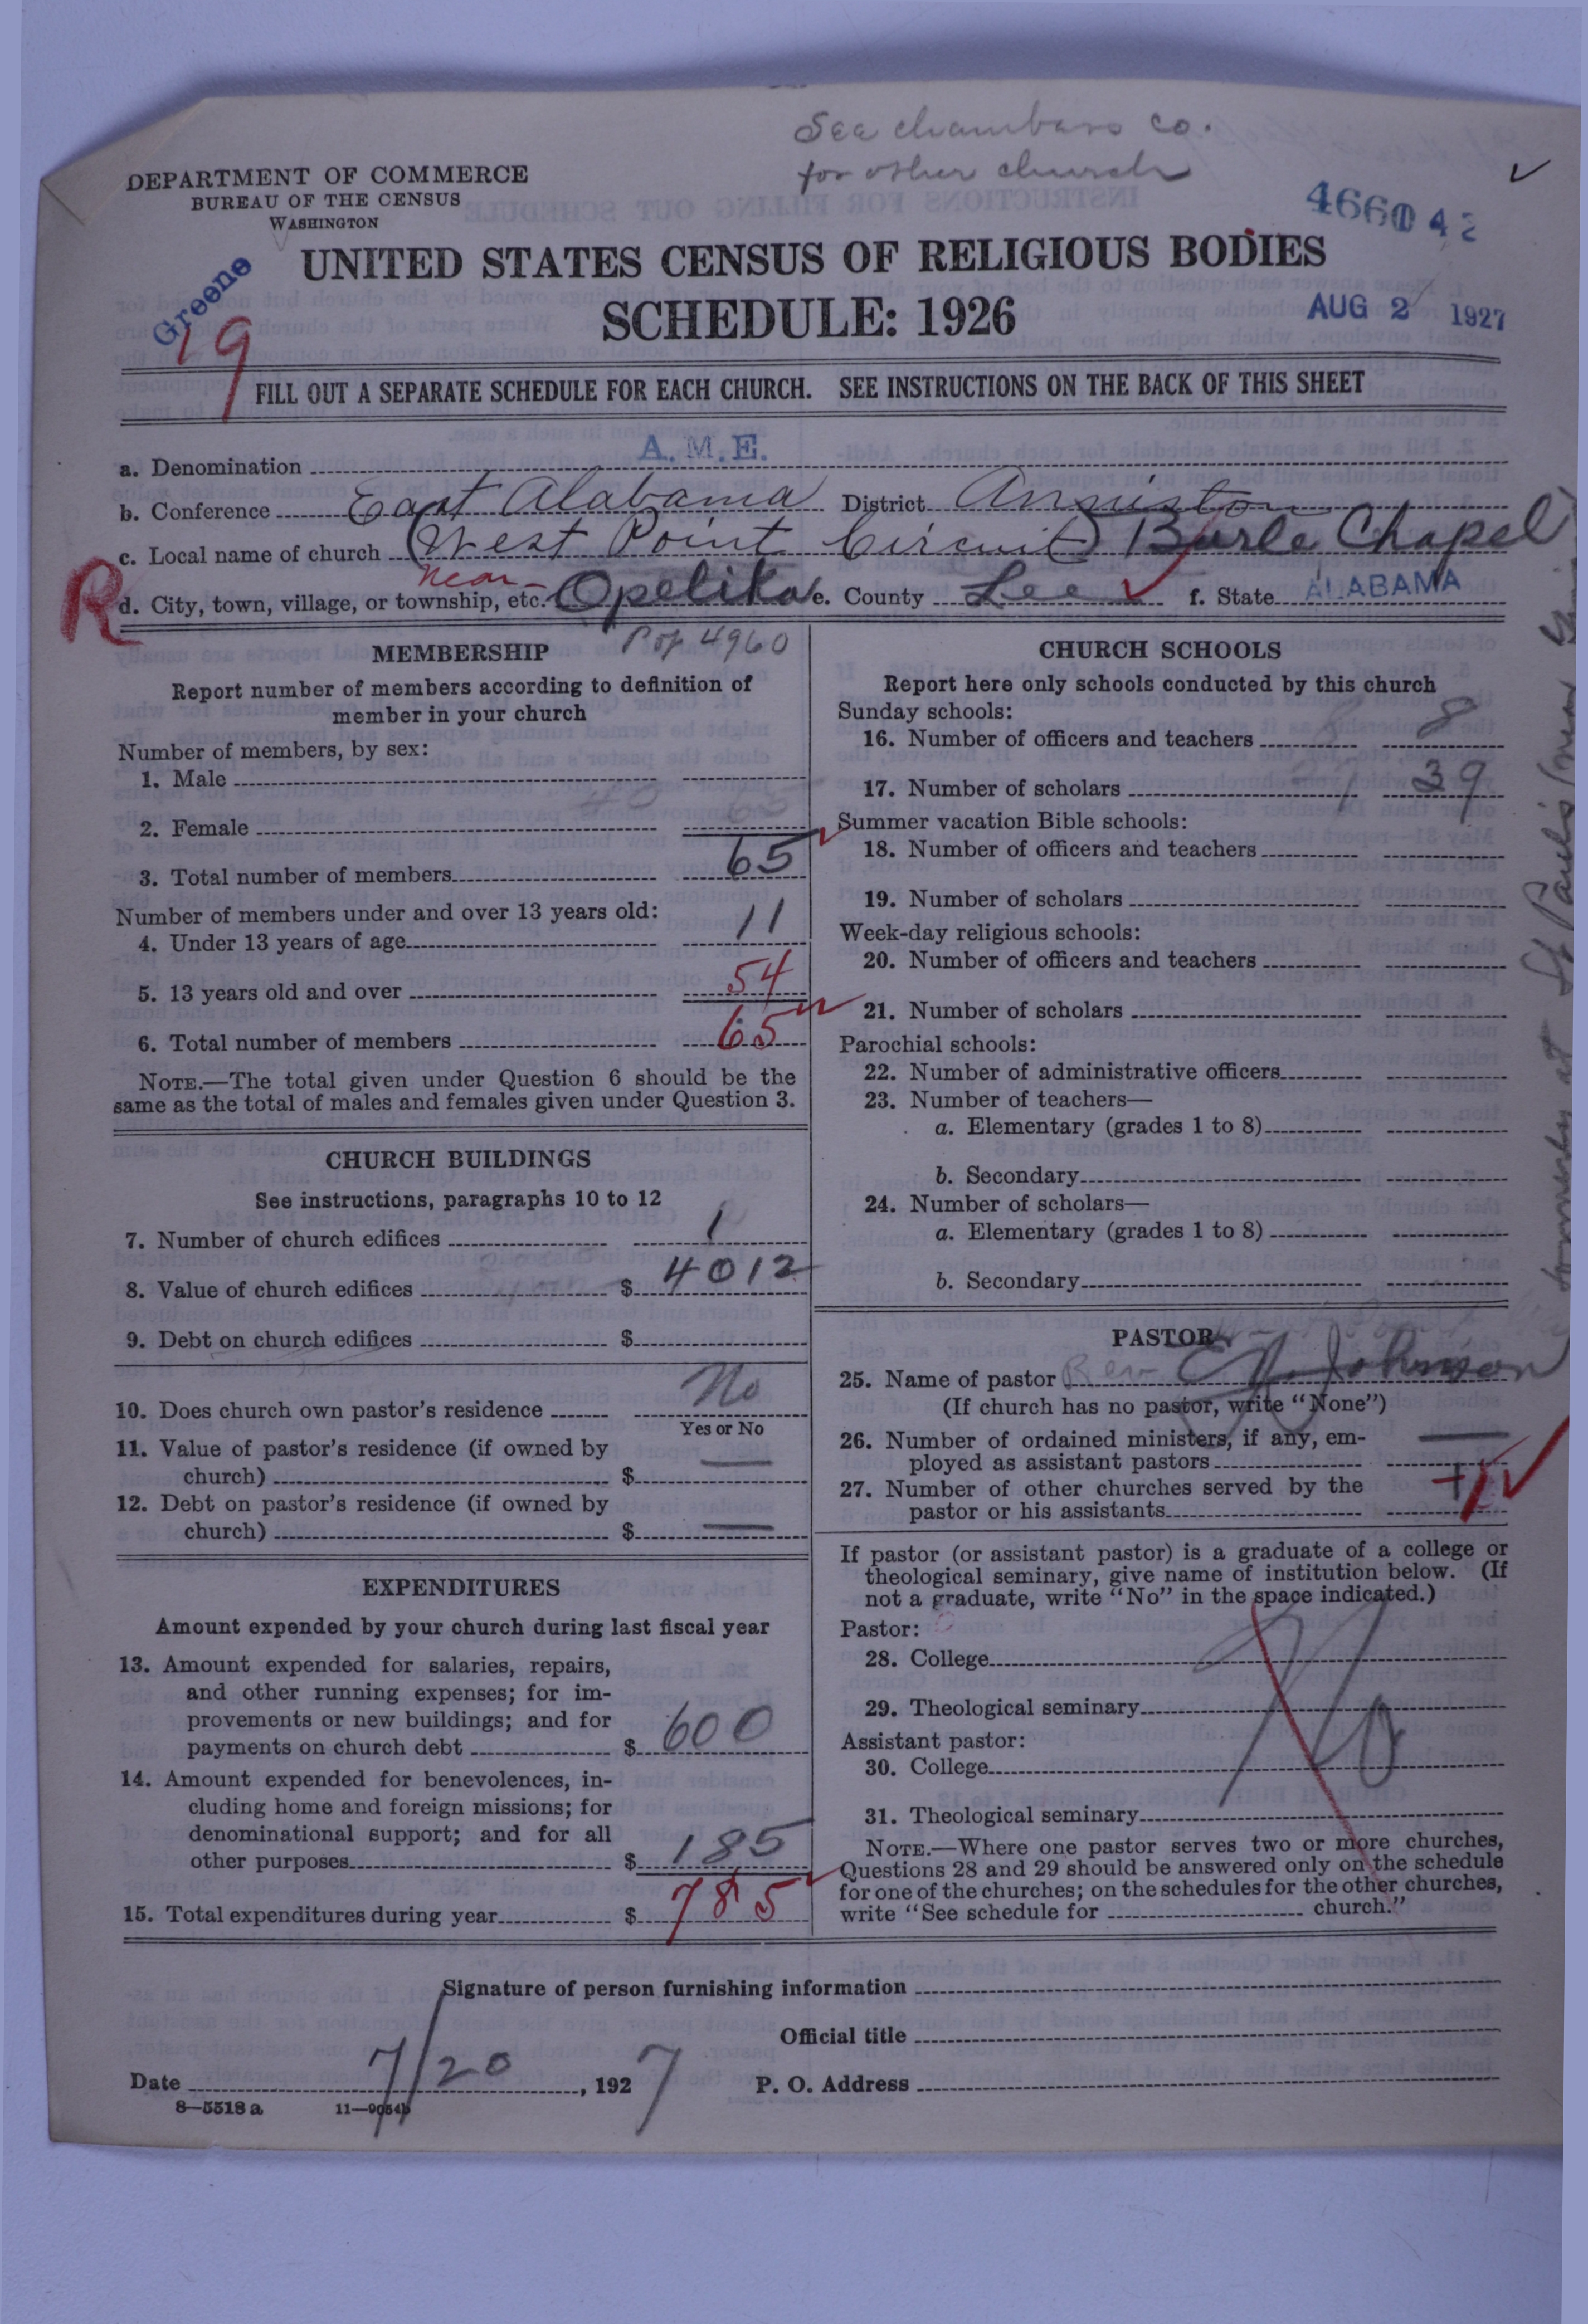 See Chambers Co.
for other church
DEPARTMENT OF COMMERCE
BUREAU OF THE CENSUS
WASHINGTON
Greene
19
4660
42
UNITED STATES CENSUS OF RELIGIOUS BODIES
SCHEDULE: 1926
AUG 2 1927
FILL OUT A SEPARATE SCHEDULE FOR EACH CHURCH. SEE INSTRUCTIONS ON THE BACK OF THIS SHEET
a. Denomination A.M.E.
b. Conference East Alabama District Anniston
c. Local name of church (West Point Circuit) Burle Chapel
R d. City, town, village, or township, etc. near Opelika e. County Lee f. State ALABAMA
Pop 4960
MEMBERSHIP
Report number of members according to definition of
member in your church
Number of members, by sex:
1. Male
2. Female
3. Total number of members 65
Number of members under and over 13 years old:
4. Under 13 years of age 11
5. 13 years old and over 54
6. Total number of members 65
NOTE.—The total given under Question 6 should be the
same as the total of males and females given under Question 3.
CHURCH BUILDINGS
See instructions, paragraphs 10 to 12
7. Number of church edifices 1
8. Value of church edifices $ 4012
9. Debt on church edifices $
10. Does church own pastor's residence No
Yes or No
11. Value of pastor's residence (if owned by
church) $ —
12. Debt on pastor's residence (if owned by
church) $ —
EXPENDITURES
Amount expended by your church during last fiscal year
13. Amount expended for salaries, repairs,
and other running expenses; for im-
provements or new buildings; and for
payments on church debt $ 600
14. Amount expended for benevolences, in-
cluding home and foreign missions; for
denominational support; and for all
other purposes $ 185
15. Total expenditures during year $ 785
CHURCH SCHOOLS
Report here only schools conducted by this church
Sunday schools:
16. Number of officers and teachers 8
17. Number of scholars 39
Summer vacation Bible schools:
18. Number of officers and teachers
19. Number of scholars
Week-day religious schools:
20. Number of officers and teachers
21. Number of scholars
Parochial schools:
22. Number of administrative officers
23. Number of teachers—
a. Elementary (grades 1 to 8)
b. Secondary
24. Number of scholars—
a. Elementary (grades 1 to 8)
b. Secondary
PASTOR
25. Name of pastor Rev. Johnson
(If church has no pastor, write "None")
26. Number of ordained ministers, if any, em-
ployed as assistant pastors —
27. Number of other churches served by the
pastor or his assistants 1
If pastor (or assistant pastor) is a graduate of a college or
theological seminary, give name of institution below. (If
not a graduate, write "No" in the space indicated.)
Pastor:
28. College
29. Theological seminary
No
Assistant pastor:
30. College
31. Theological seminary
NOTE.—Where one pastor serves two or more churches,
Questions 28 and 29 should be answered only on the schedule
for one of the churches; on the schedules for the other churches,
write "See schedule for church."
Signature of person furnishing information
Official title
Date 7/20, 1927 P. O. Address
8—5518 a 11—9054b